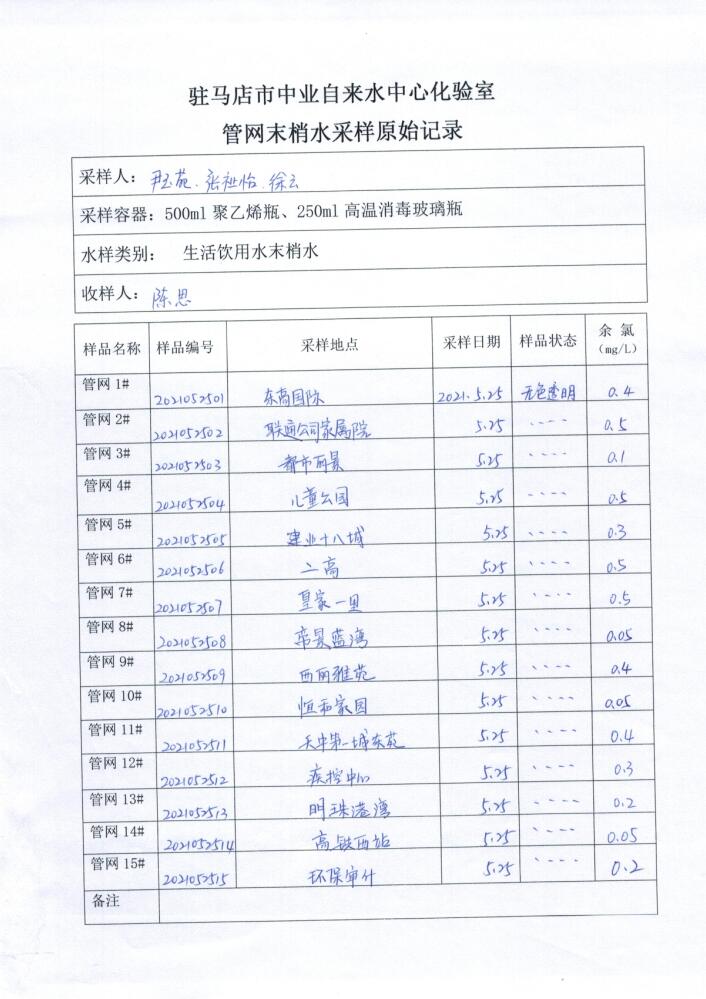 驻马店市中业自来水中心化验室
管网末梢水采样原始记录
采样人: 尹玉苑、张祉怡、徐云
采样容器: 500ml 聚乙烯瓶、250ml 高温消毒玻璃瓶
水样类别: 生活饮用水末梢水
收样人: 陈思
样品名称 样品编号 采样地点 采样日期 样品状态 余 氯 (mg/L)
管网 1# 2021052501 东高国际 2021.5.25 无色透明 0.4
管网 2# 2021052502 联通公司家属院 5.25 、、、、 0.5
管网 3# 2021052503 都市丽景 5.25 、、、、 0.1
管网 4# 2021052504 儿童公园 5.25 、、、、 0.5
管网 5# 2021052505 建业十八城 5.25 、、、、 0.3
管网 6# 2021052506 二高 5.25 、、、、 0.5
管网 7# 2021052507 皇家一里 5.25 、、、、 0.5
管网 8# 2021052508 帝景蓝湾 5.25 、、、、 0.05
管网 9# 2021052509 西丽雅苑 5.25 、、、、 0.4
管网 10# 2021052510 恒和家园 5.25 、、、、 0.05
管网 11# 2021052511 天中第一城东苑 5.25 、、、、 0.4
管网 12# 2021052512 疾控中心 5.25 、、、、 0.3
管网 13# 2021052513 明珠港湾 5.25 、、、、 0.2
管网 14# 2021052514 高铁西站 5.25 、、、、 0.05
管网 15# 2021052515 环保审什 5.25 、、、、 0.2
备注